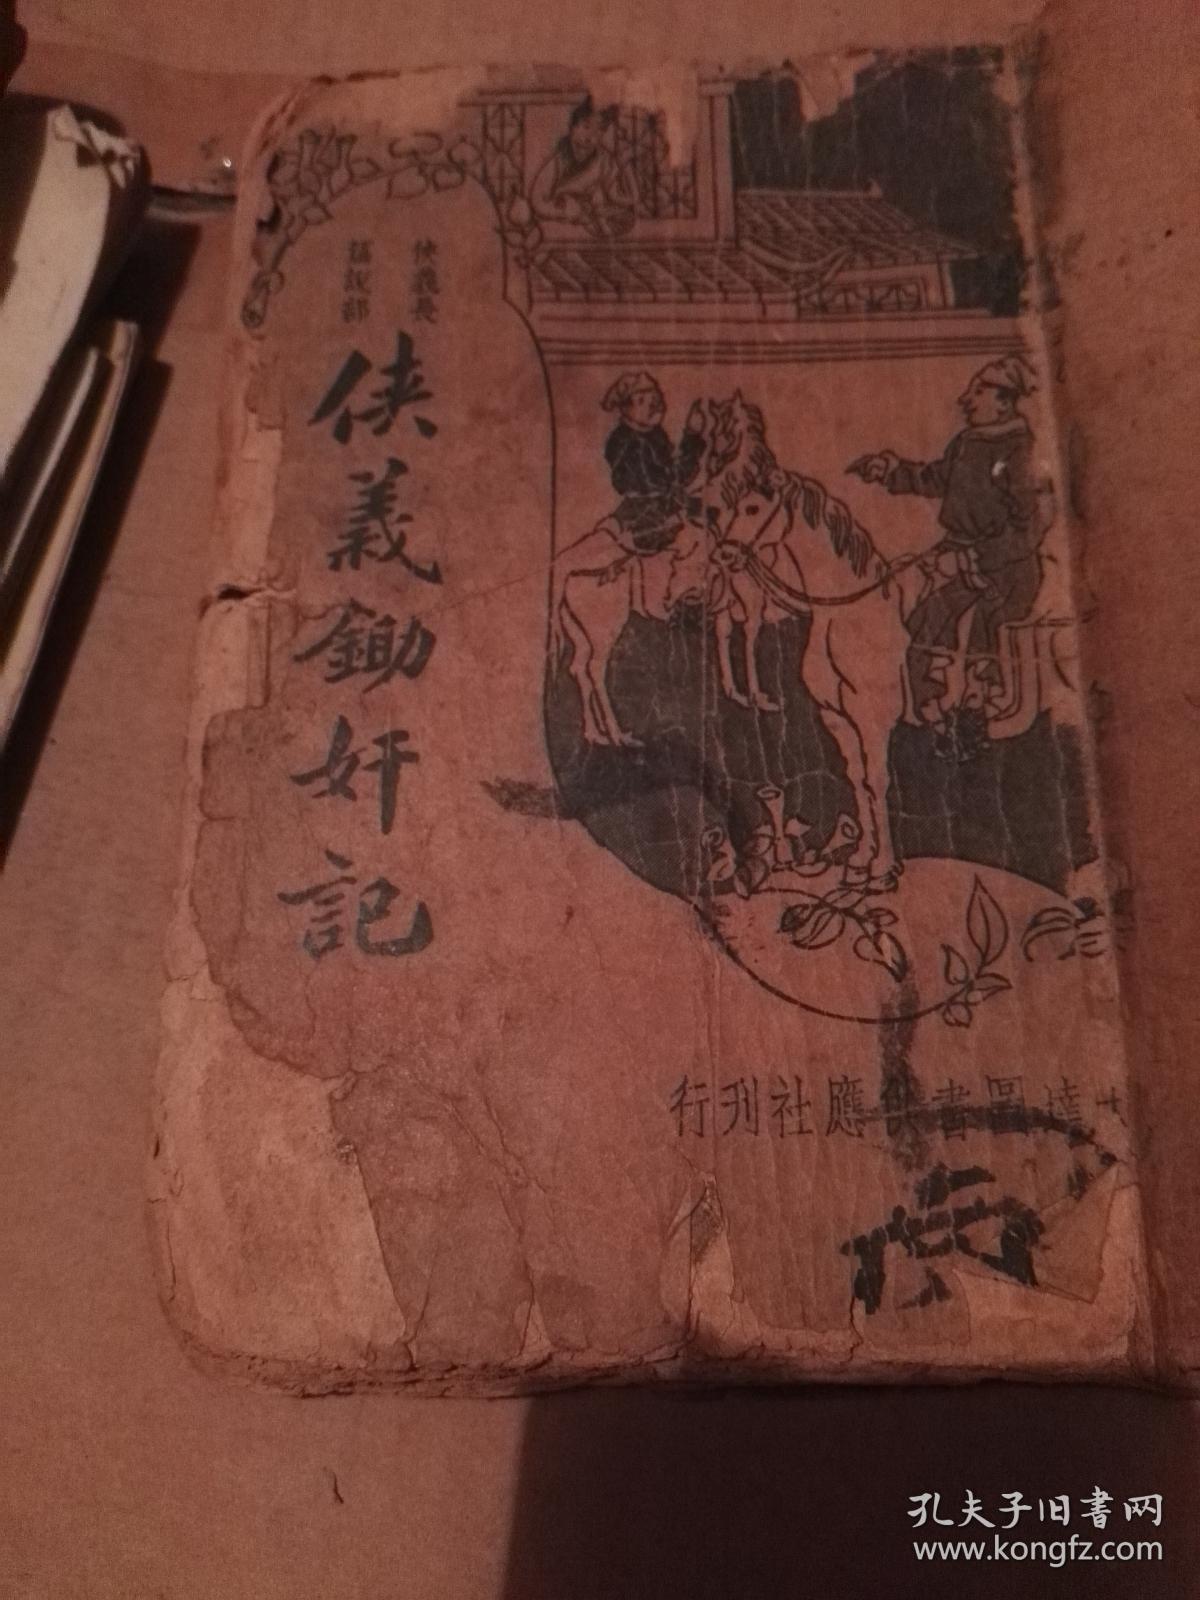 俠義長
篇說部
俠義鋤奸記
行刊社應供書圖達大
孔夫子旧書网
www.kongfz.com